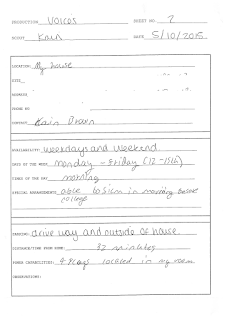 PRODUCTION Voices SHEET NO. 2
SCOUT DATE 5/10/2015
LOCATION: My house
SITE
ADDRESS
PHONE NO
CONTACT
AVAILABILITY: weekdays and weekend
DAYS OF THE WEEK monday - Friday (12 -
TIMES OF THE DAY morning
SPECIAL ARRANGEMENTS able to in morning before
college
PARKING: drive way and outside of house
DISTANCE/TIME FROM HOME: 32 minutes
POWER CAPABILITIES: 4 Plugs located in my room
OBSERVATIONS: